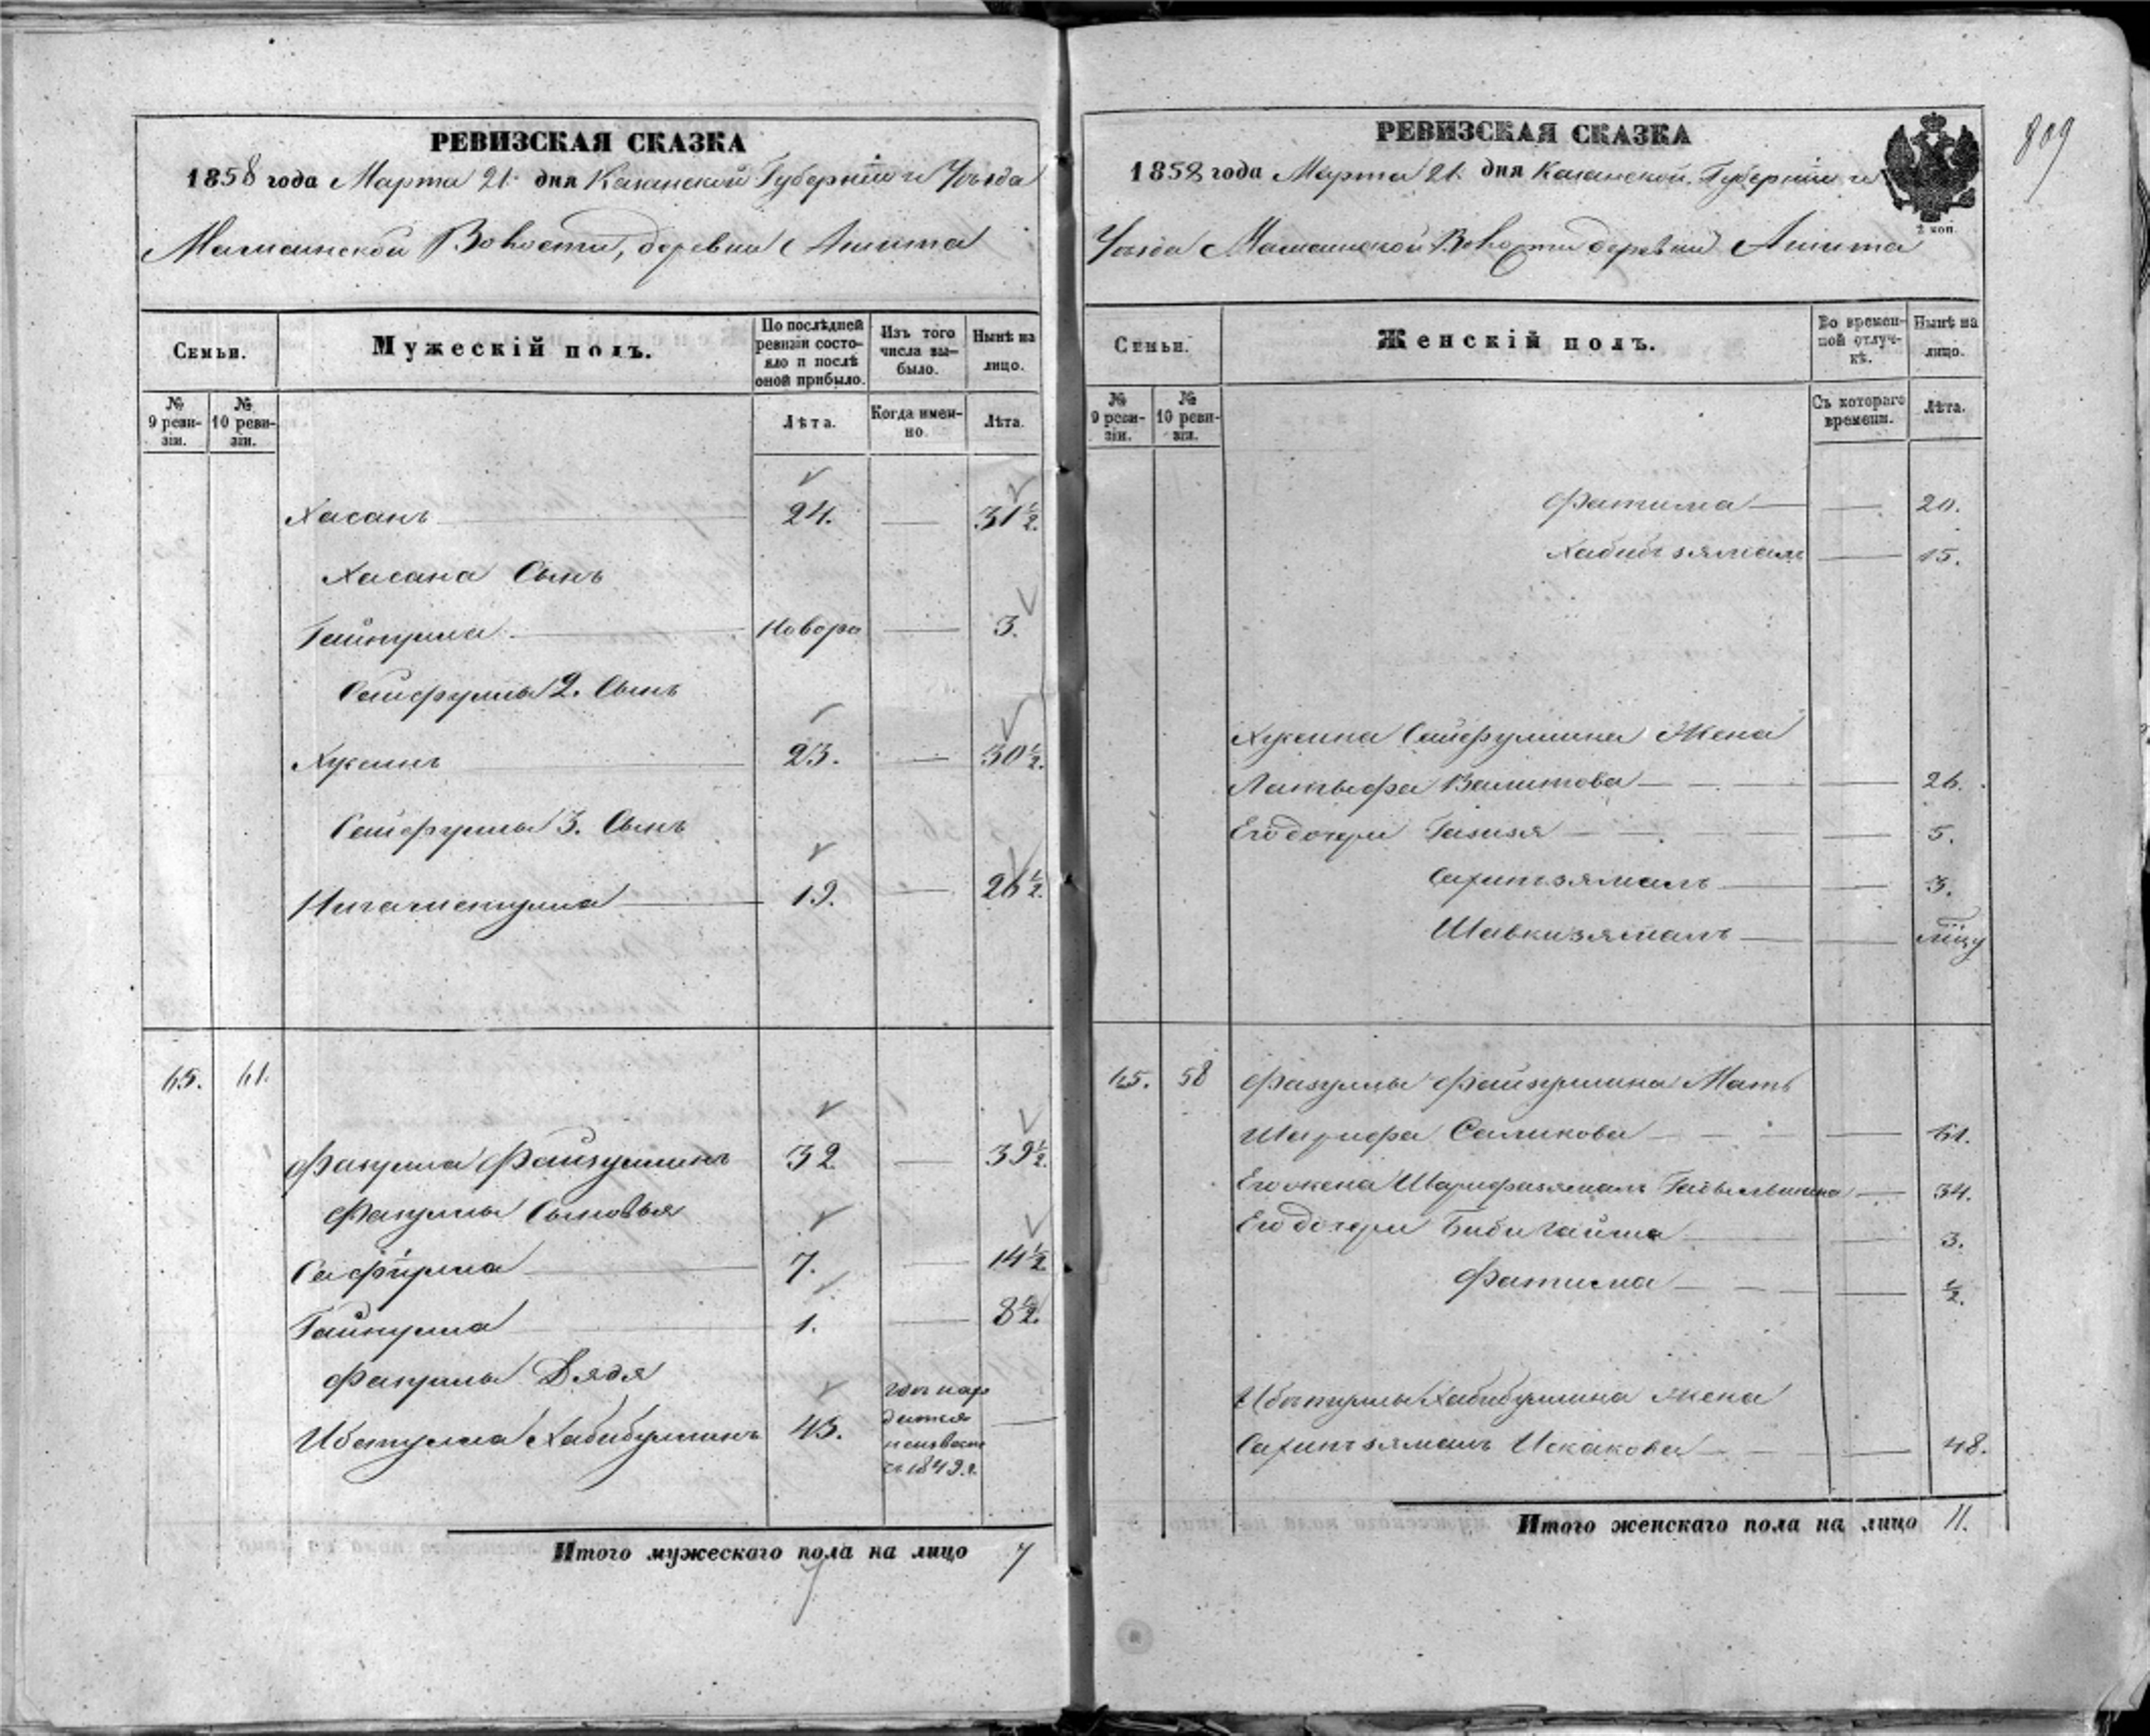 РЕВИЗСКАЯ СКАЗКА
1858 года Марта 21. дня Казанской Губерніи и Уѣзда
Мамсинской Волости, деревни Ашита
Семьи.
Мужескій полъ.
По послѣдней ревизіи состояло и послѣ оной прибыло.
Изъ того числа выбыло.
Нынѣ на лицо.
№ 9 ревизіи.
№ 10 ревизіи.
Лѣта.
Когда именно.
Лѣта.
Хасанъ 24. — 31½.
Хасана Сынъ
Гайнулла Новоро — 3.
Сейфуллы 2. Сынъ
Хусеинъ 23. — 30½.
Сейфуллы 3. Сынъ
Нигаметулла 19. — 26½.
65. 61.
Фазулла Файзуллинъ 32 — 39½.
Фазуллы Сыновья
Сафіулла 7. — 14½
Гайнулла 1. — 8½.
Фазуллы Дядя
Ибятулла Хабибуллинъ 45. —
неизвестно
съ 1849. г.
Итого мужескаго пола на лицо 7
7
809
РЕВИЗСКАЯ СКАЗКА
1858 года Марта 21. дня Казанской Губерніи и
2 коп.
Уѣзда Мамсинской Волости деревни Ашита
Семьи.
Женскій полъ.
Во временной отлучкѣ.
Нынѣ на лицо.
№ 9 ревизіи.
№ 10 ревизіи.
Съ котораго времени.
Лѣта.
Фатима — — 20.
Хабибзямалъ — 15.
Хусеина Сейфуллина Жена
Латыфа Валитова — — 26.
Его дочери Газизя — — 5.
Сахипзямалъ — — 3.
Шавкизямалъ — —
65. 58 Фазуллы Файзуллина Мать
Шарифа Саликова — — 61.
Его жена Шарифазямалъ — 34.
Его дочери Бибигайша — 3.
Фатима — — ½.
Ибятуллы Хабибуллина жена
Сахипзямалъ Искакова — — 48.
Итого женскаго пола на лицо 11.